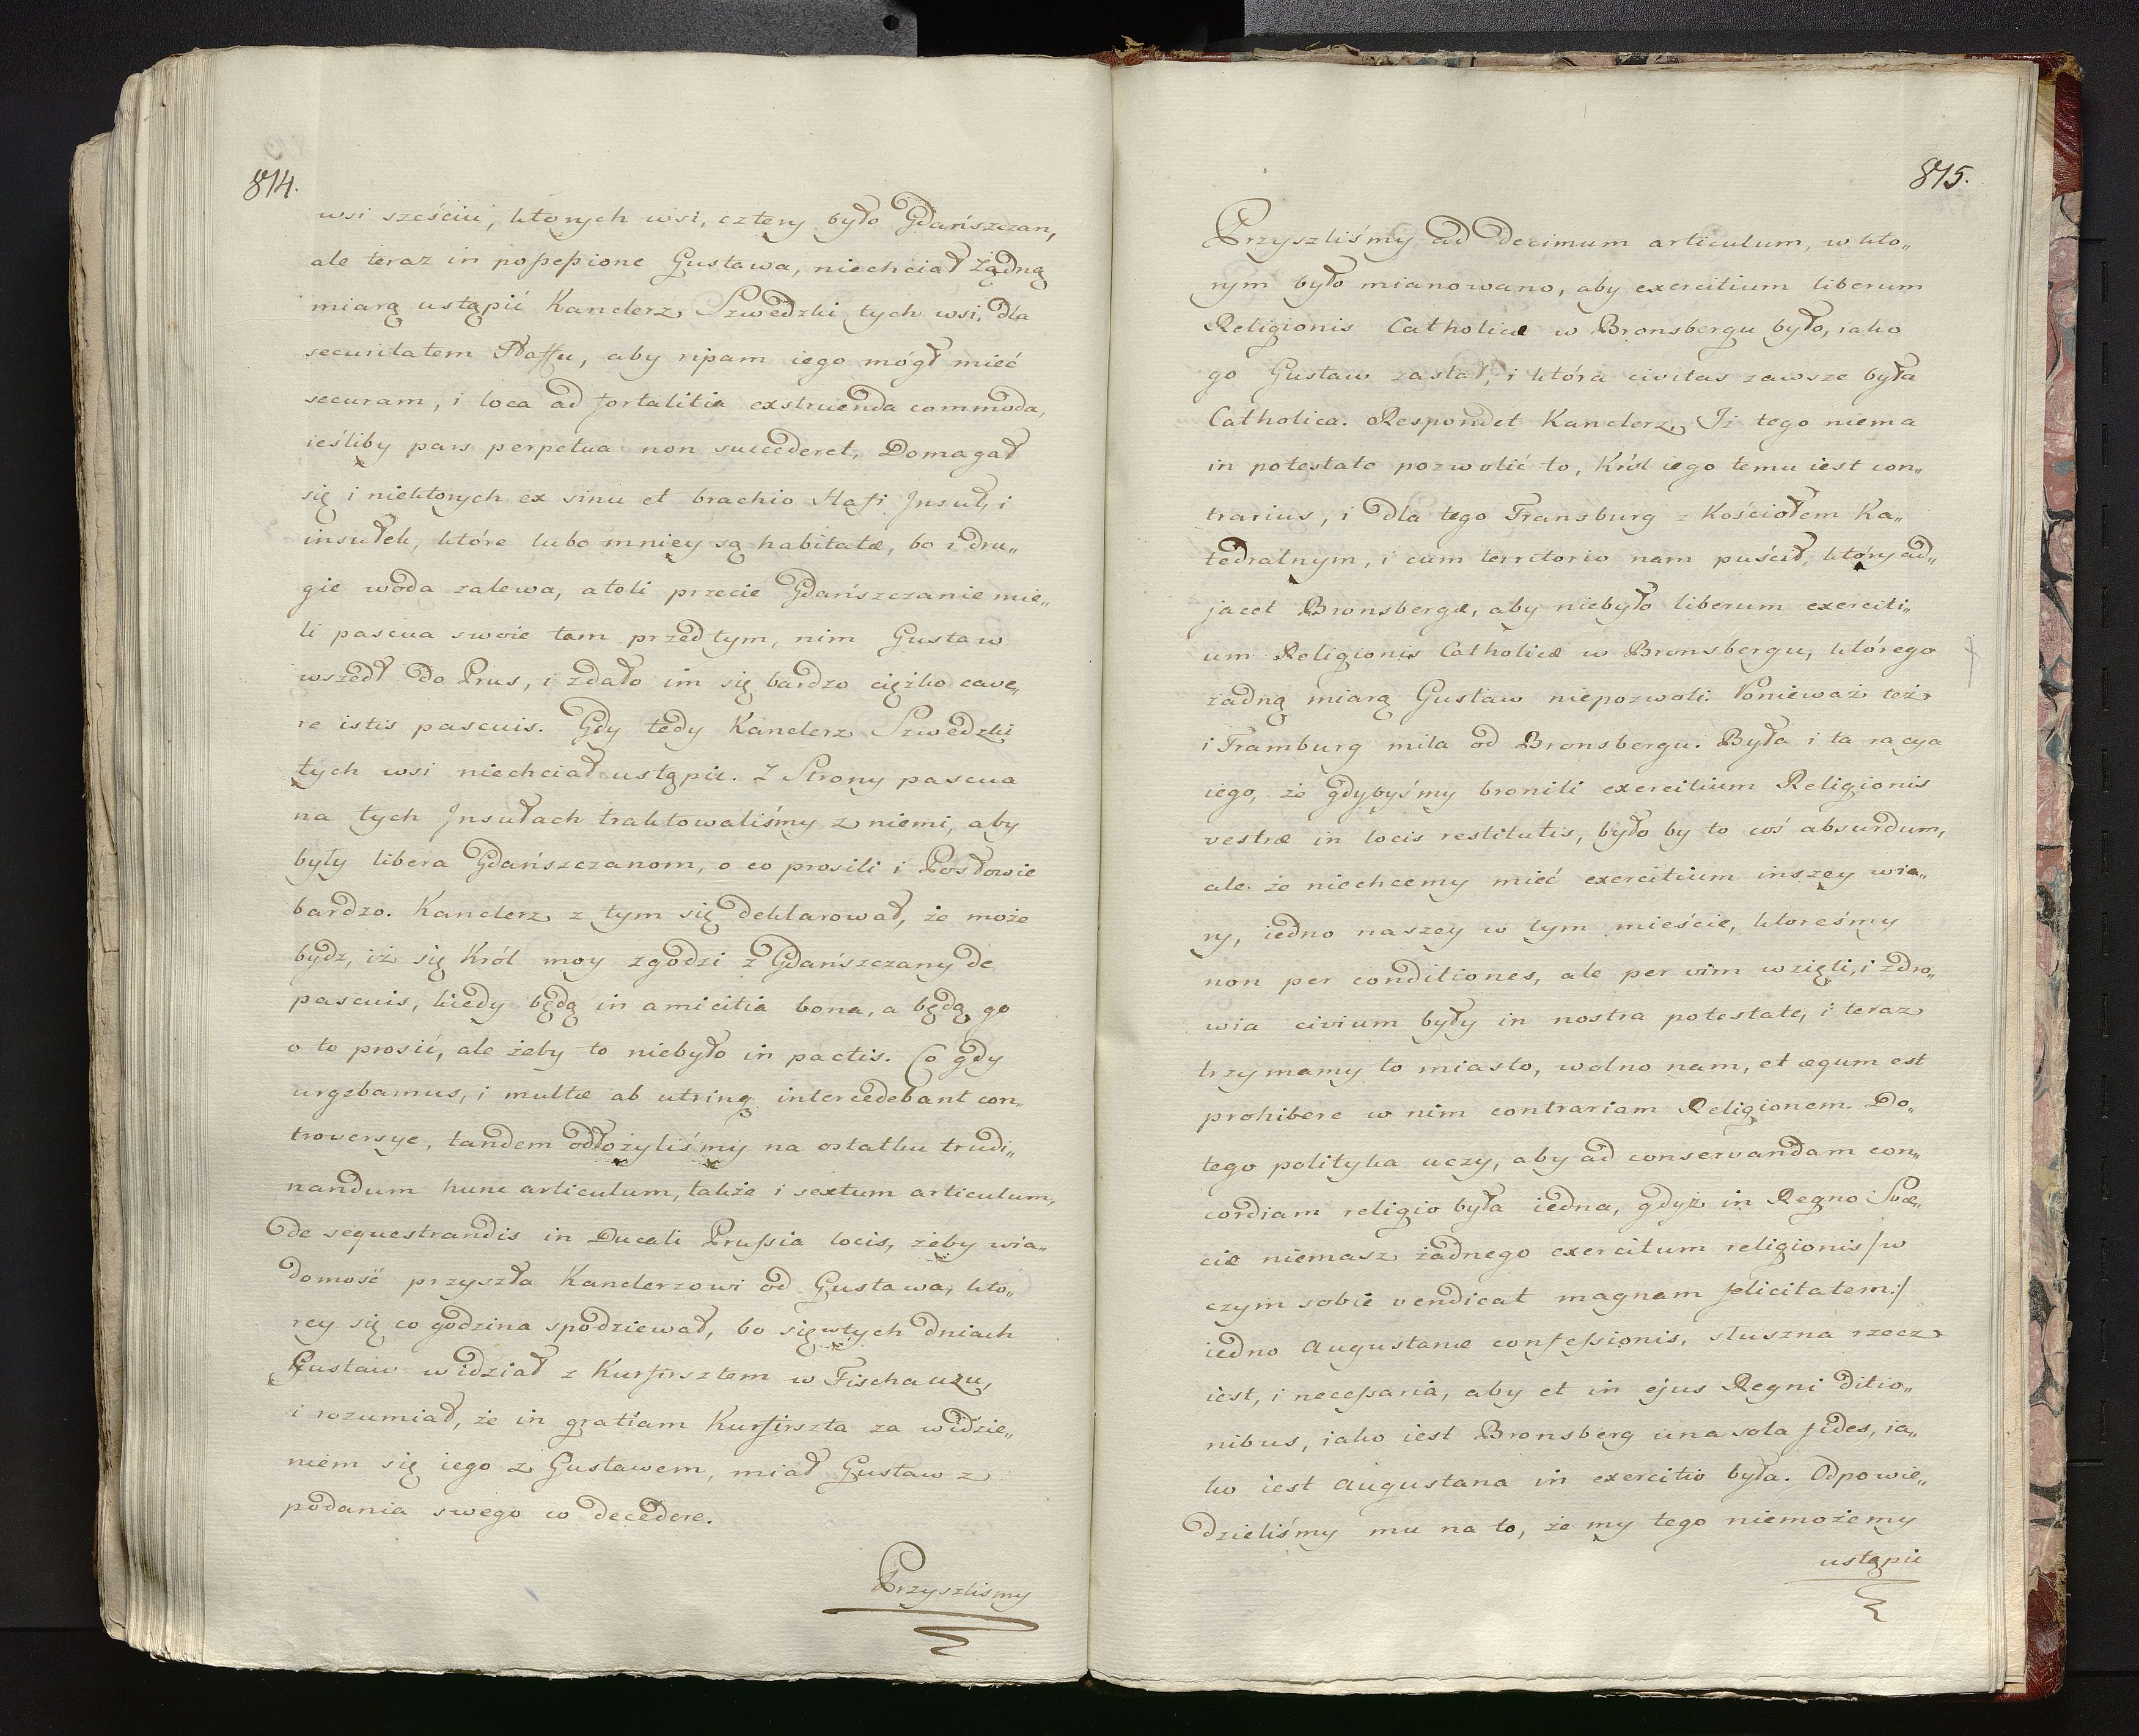 814.
wsi sześciu, ktorych wsi, cztery było Gdańszczan,
ale teraz in possessione Gustawa, niechciał żadną
miarą ustąpić Kanclerz Szwedzki tych wsi, dla
securitatem Haffu, aby ripam iego mógł mieć
securam, i loca ad fortalitia exstruenda commoda,
ieśliby pars perpetua non succederet, Domagał
się i niektorych ex sinu et brachio Hafi Jnsuł, i
insułek, które lubo mniey są habitatæ, bo i dru„
gie woda zalewa, atoli przecie Gdańszczanie mie„
li pascua swoie tam przedtym, nim Gustaw
wszedł do Prus, i zdało im się bardzo ciężko cave„
re istis pascuis. Gdy tedy Kanclerz Szwedzki
tych wsi niechciał ustąpić. Z Strony pascua
na tych Jnsułach traktowaliśmy z niemi, aby
były libera Gdańszczanom, o co prosili i Posłowie
bardzo. Kanclerz z tym się deklarował, że może
bydz, iż się Król moy zgodzi z Gdańszczany de
pascuis, kiedy będą in amicitia bona, a będą go
o to prosić, ale żeby to niebyło in pactis. Co gdy
urgebamus, i multæ ab utrinq intercedebant con„
troversye, tandem odłożyliśmy na ostatku trudi„
nandum hunc articulum, także i sextum articulum,
de sequestrandis in Ducali Prussia locis, żeby wia„
domość przyszła Kanclerzowi od Gustawa, kto„
rey się co godzina spodziewał, bo się w tych dniach
Gustaw widział z Kurfirsztem w Fischauzu,
i rozumiał, że in gratiam Kurfirszta za widzie„
niem się iego z Gustawem, miał Gustaw z
podania swego w decedere.
Przyszlismy
815.
Przyszliśmy ad decimum articulum, w kto„
rym było mianowano, aby exercitium liberum
Religionis Catholicæ w Bronsbergu było, iako
go Gustaw zastał, i która civitas zawsze była
Catholica. Respondet Kanclerz, Iż tego niema
in potestate pozwolić to, Król iego temu iest con„
trarius, i dla tego Fransburg z Kościołem Ka„
tedralnym, i cum territorio nam puścił, który ad„
jacet Bronsbergæ, aby niebyło liberum exerciti„
um Religionis Catholicæ w Bronsbergu, którego
żadną miarą Gustaw niepozwoli. Ponieważ też
i Framburg mila od Bronsbergu. Była i ta racya
iego, że gdybyśmy bronili exercitium Religionis
vestræ in locis restitutis, było by to coś absurdum,
ale że niechcemy mieć exercitium inszey wia„
ry, iedno naszey w tym mieście, ktoreśmy
non per conditiones, ale per vim wzięli, i zdro„
wia civium były in nostra potestate, i teraz
trzymamy to miasto, wolno nam, et æqum est
prohibere w nim contrariam Religionem. Do„
tego polityka uczy, aby ad conservandam con„
cordiam religio była iedna, gdyż in Regno Svæ„
ciæ niemasz żadnego exercitum religionis /w
czym sobie vendicat magnam felicitatem:/
iedno Augustanæ confessionis, słuszna rzecz
iest, i necessaria, aby et in ejus Regni ditio„
nibus, iako iest Bronsberg una sola fides, ia„
ko iest Augustana in exercitio była. Odpowie„
dzieliśmy mu na to, że my tego niemożemy
ustąpić